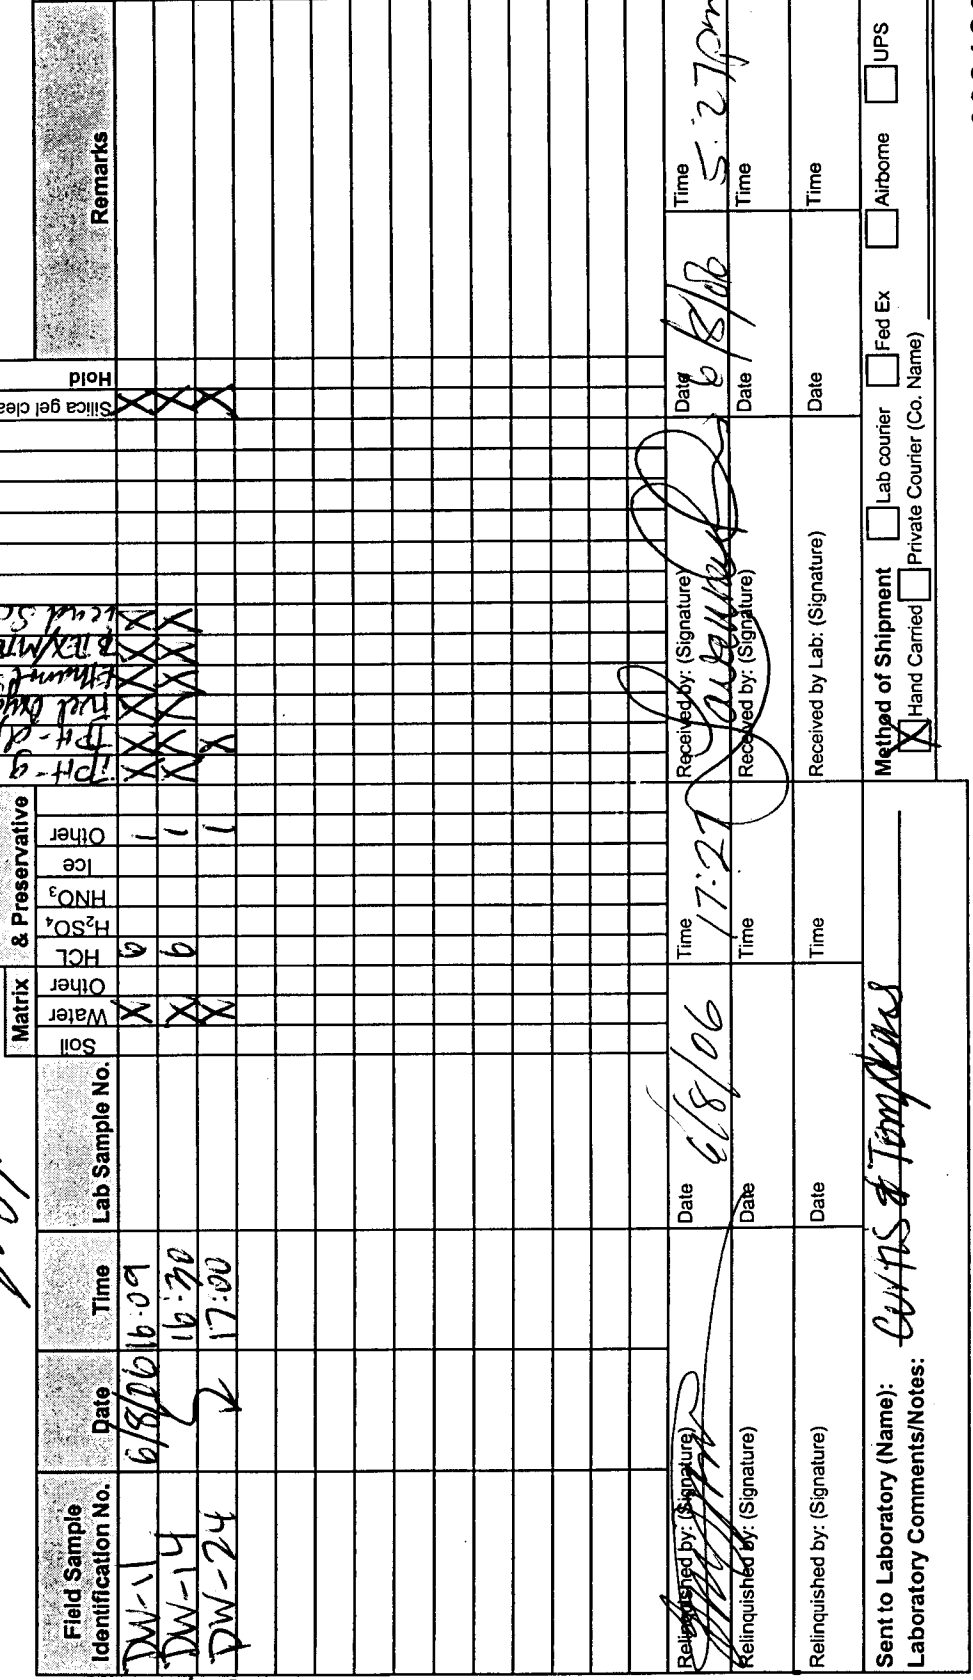 Matrix & Preservative
Field Sample Identification No. Date Time Lab Sample No. Soil Water Other HCL H₂SO₄ HNO₃ Ice Other TPH-g TPH-d Ethanol Silica gel Hold Remarks
DW-11 6/8/06 16:09 X 6 1 X X X X X X X
DW-14 16:30 X 6 1 X X X X X X X
DW-24 17:00 X 1 X X
Relinquished by: (Signature) Date 6/8/06 Time 17:27 Received by: (Signature) Date 6/8/06 Time 5:27pm
Relinquished by: (Signature) Date Time Received by: (Signature) Date Time
Relinquished by: (Signature) Date Time Received by Lab: (Signature) Date Time
Sent to Laboratory (Name): Curtis & Tompkins
Laboratory Comments/Notes:
Method of Shipment Lab courier Fed Ex Airborne UPS
X Hand Carried Private Courier (Co. Name)